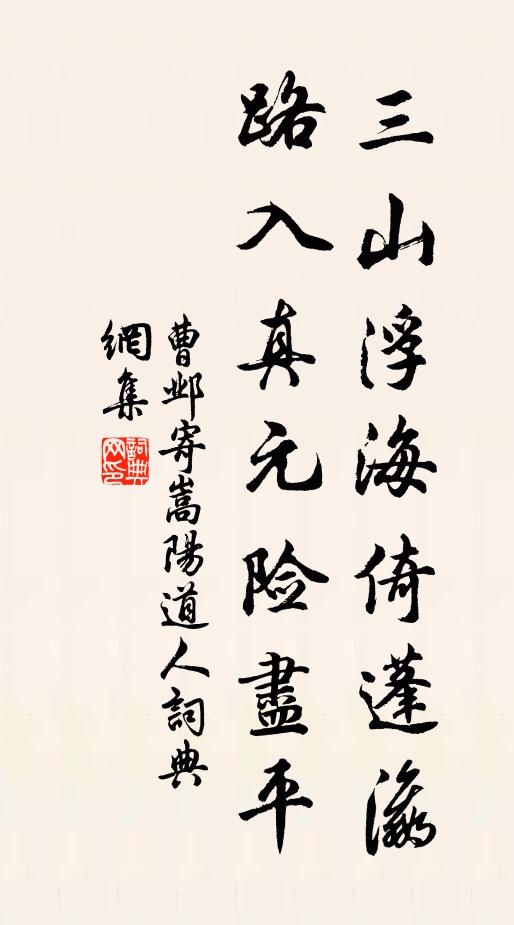 三山浮海倚蓬瀛
路入真元险盡平
曹邺寄嵩陽道人詞典
網集
詞典網印